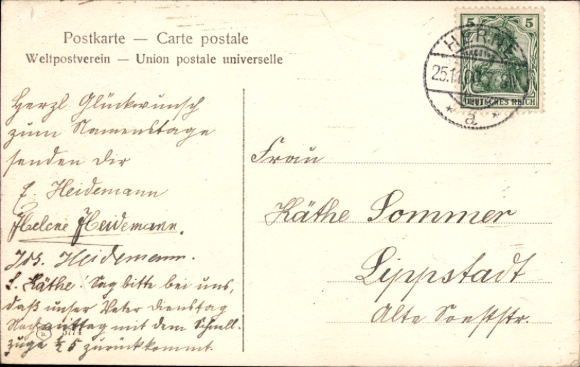 Postkarte — Carte postale
Weltpostverein — Union postale universelle
5 5
DEUTSCHES REICH
HERNE
25.1
* a *
Herzl. Glückwunsch
zum Namenstage
senden dir
E. Heidemann
Helene Heidemann.
Jos. Heidemann.
L. Käthe! Sag bitte bei uns,
daß unser Vater Dienstag
Nachmittag mit dem Schnell-
zuge ½ 5 zurückkommt.
Frau
Käthe Sommer
Lippstadt
Alte Soeststr.